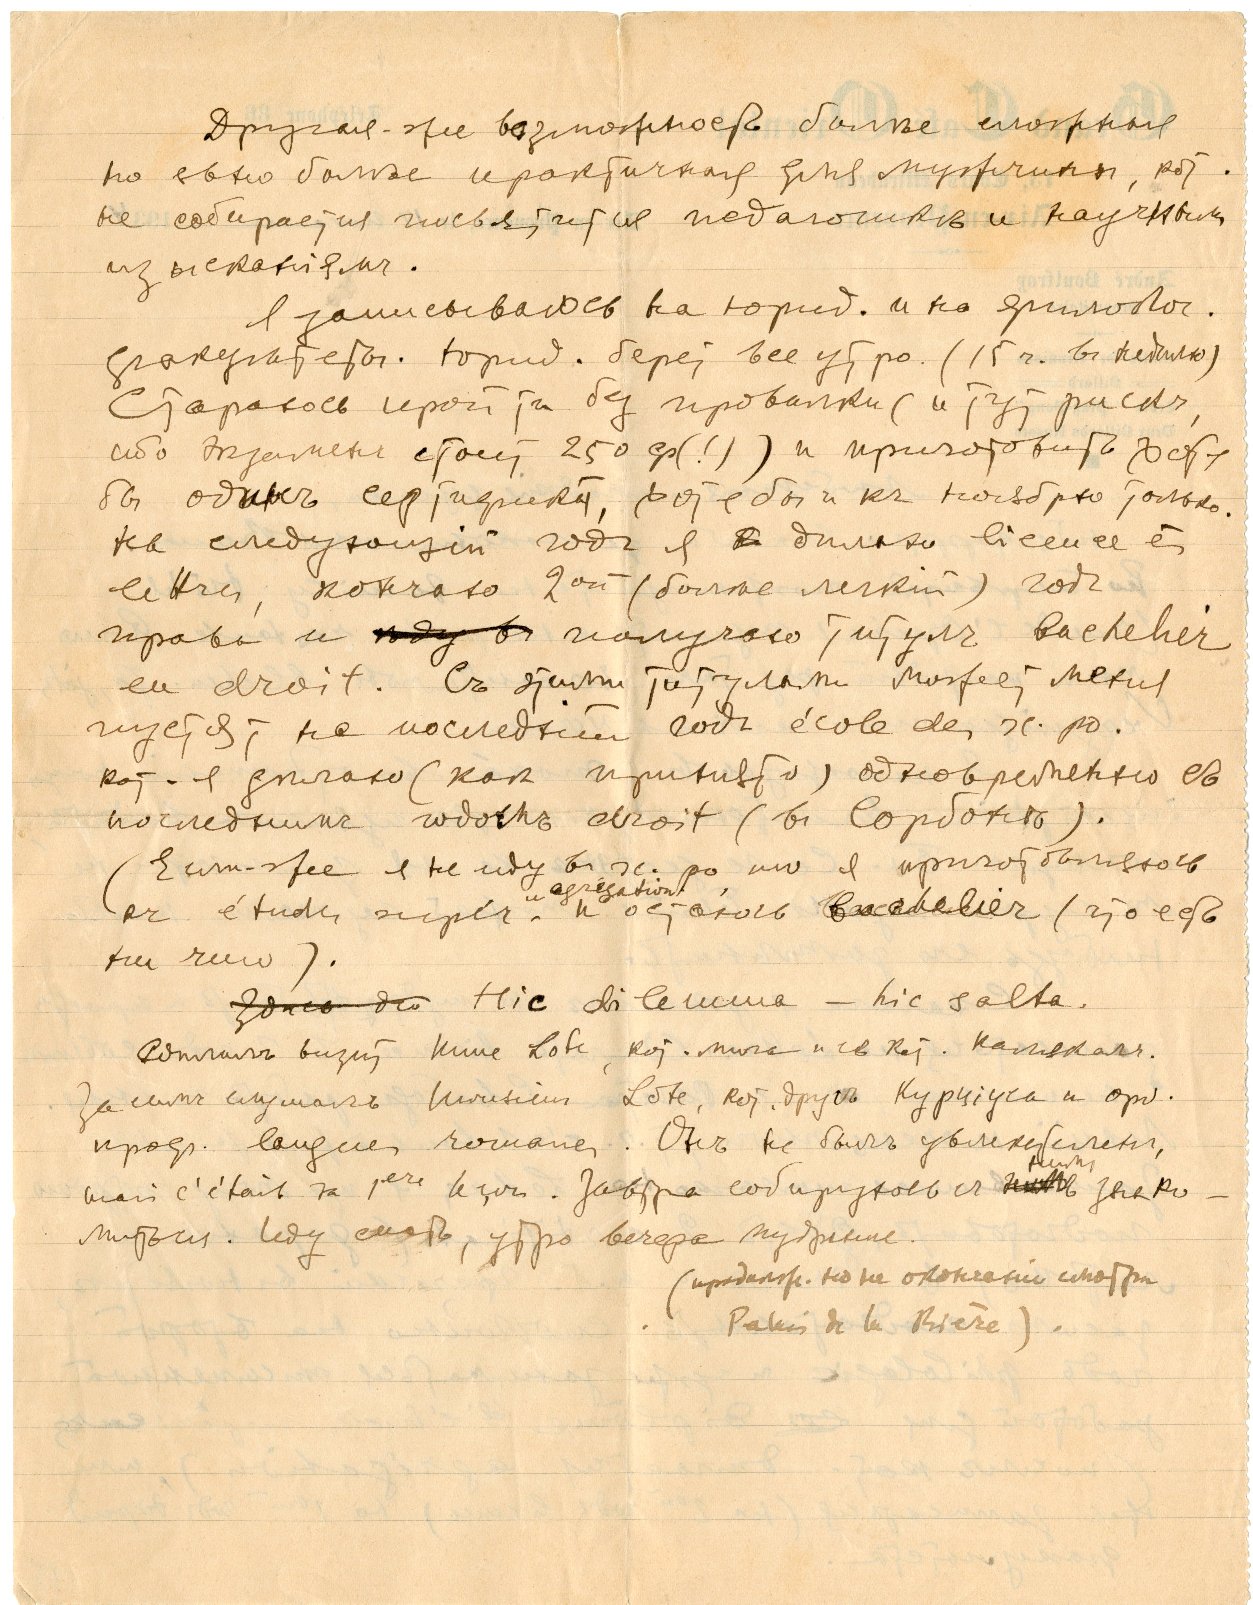 Другая-же возможность болѣе сложная
но явно болѣе практичная для мужчины, кот.
не собирается посвятится педагогикѣ и научнымъ
изысканіямъ.
Я записываюсь на юрид. и на филолог.
факультеты. Юрид. берет все утро. (15 ч. въ недѣлю)
Стараюсь пройти без провалки (и тут рискъ,
ибо экзаменъ стоит 250 ф(!)) и приготовить хотя
бы одинъ сертификат, хотя бы и къ ноябрю только.
На следующій годъ я дѣлаю licence ès
lettres, кончаю 2ой (болѣе легкій) годъ
права и ~~иду въ~~ получаю титулъ bachelier
en droit. Съ этими титулами может меня
пустят на последній годъ école des sc. po.
кот. я дѣлаю (как принято) одновременно съ
последнимъ годомъ droit (въ Сорбонѣ).
(Если-же я не иду въ sc. po, то я приготовляюсь
къ études supér. и agrégation. и остаюсь bachelier (что есть
ни чего).
~~Здесь до~~ Hic dilemma — hic salta.
Сдѣлалъ визит Mme Lote, кот. мила и съ кот.
За симъ слушалъ Monsieur Lote, кот. другъ Курціуса и орд.
проф. langues romanes. Онъ не былъ увлекателенъ,
mais c'était sa 1ère leçon. Завтра собираюсь съ нимъ знако-
миться. Иду спать, утро вечера мудрѣнее.
(продолж. но не окончаніе смотри
Palais de la Bière).